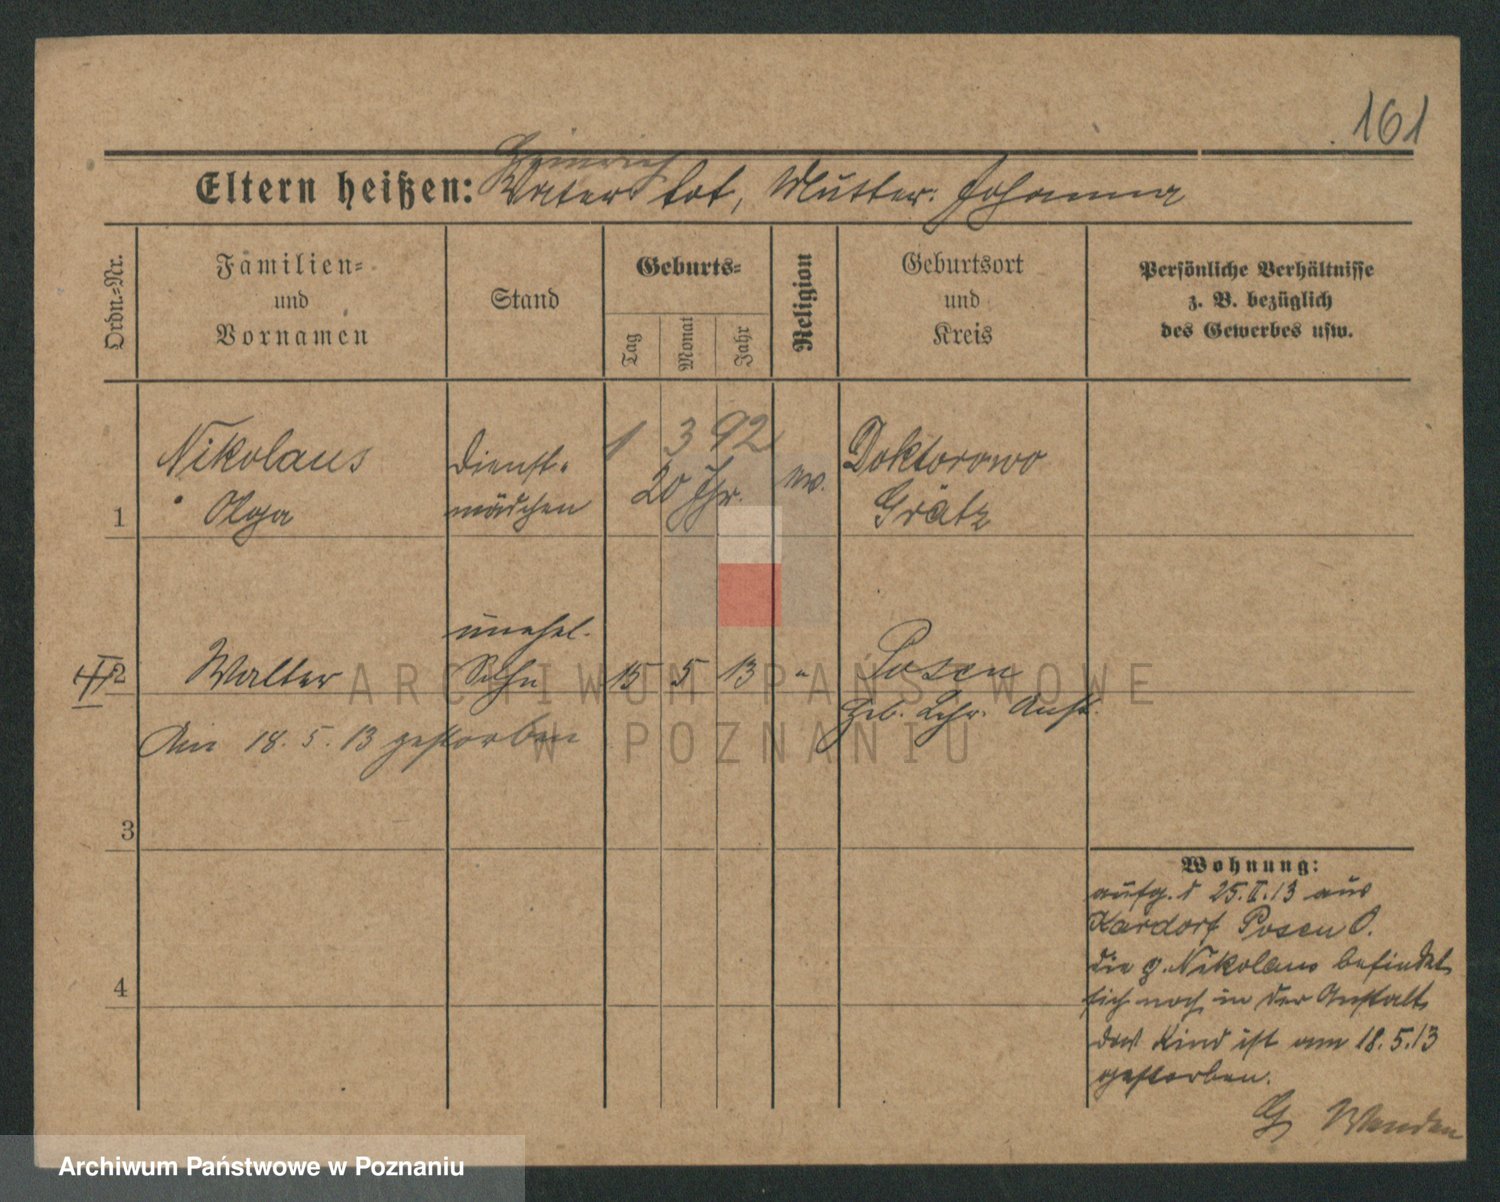 161
Heinrich
Eltern heißen: Vater tot, Mutter: Johanna
Ordn.=Nr.
Familien=
und
Vornamen
Stand
Geburts=
Tag
Monat
Jahr
Religion
Geburtsort
und
Kreis
Persönliche Verhältnisse
z. B. bezüglich
des Gewerbes usw.
1
Nikolaus
Olga
Dienst=
mädchen
1 3 92
20 Jhr.
ev.
Doktorowo
Grätz
2
Walter
unehel.
Sohn
15 5 13
"
Posen
Geb. Lehr. Anst.
Am 18. 5. 13 gestorben
3
4
Wohnung:
aufg. 25.II.13 aus
Kardorf Posen O.
die g. Nikolaus befindet
sich noch in der Anstalt
das Kind ist am 18.5.13
gestorben.
ARCHIWUM PAŃSTWOWE
W POZNANIU
Archiwum Państwowe w Poznaniu